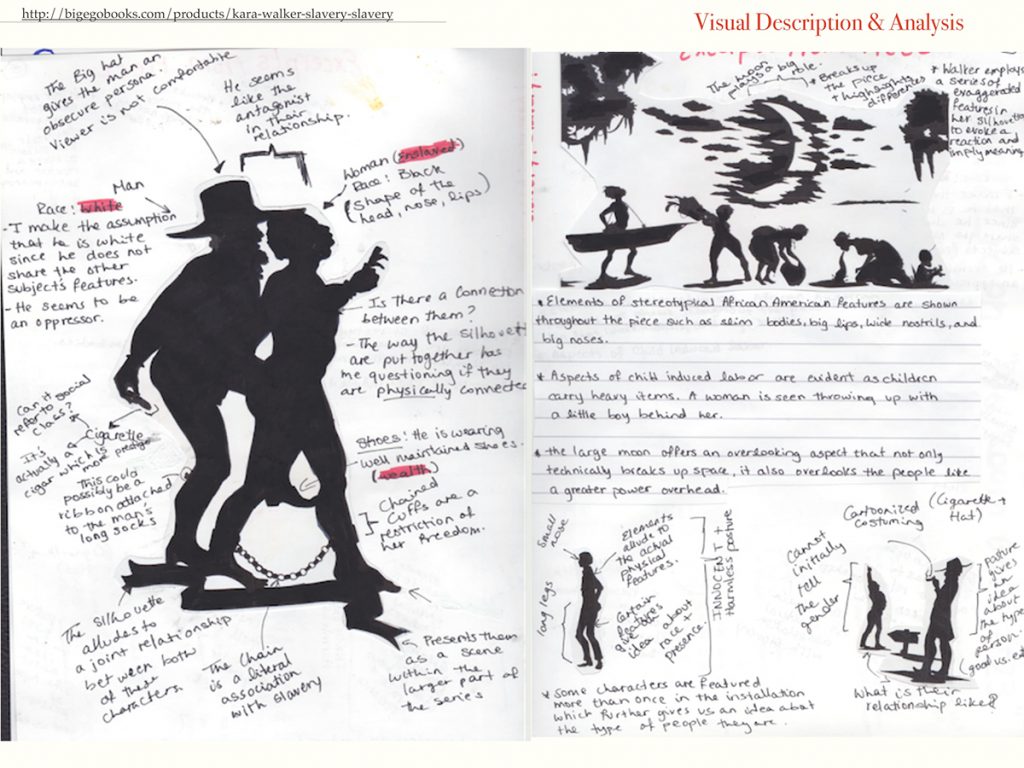 http://bigegobooks.com/products/kara-walker-slavery-slavery
Visual Description & Analysis
The Big hat
gives the man an
obscure persona.
Viewer is not comfortable
He seems
like the
antagonist
in their
relationship.
Man
Race: White
- I make the assumption
that he is white
since he does not
share the other
subject's features.
- He seems to be
an oppressor.
Woman (Enslaved)
Race: Black
(Shape of the
head, nose, lips)
- Is there a connection
between them?
- The way the silhouett
are put together has
me questioning if they
are physically connected
Can it
refer to social
class?
Cigarette
It's
actually a
cigar which is
more prestige
This could
possibly be a
ribbon attached
to the man's
long socks
Shoes: He is wearing
well maintained shoes.
(wealth)
Chained
Cuffs are a
restriction of
her freedom.
The silhouette
alludes to
a joint relationship
between both
of these
characters.
The Chain
is a literal
association
with slavery
Presents them
as a scene
within the
larger part of
the series
The moon
plays a big
role.
+ Breaks up
the piece
+ highlights
differences
* Walker employs
a series of
exaggerated
features in
her silhouettes
to evoke a
reaction and
imply meaning
• Elements of stereotypical African American features are shown
throughout the piece such as slim bodies, big lips, wide nostrils, and
big noses.
* Aspects of child induced labor are evident as children
carry heavy items. A woman is seen throwing up with
a little boy behind her.
* the large moon offers an overlooking aspect that not only
technically breaks up space, it also overlooks the people like
a greater power overhead.
Small
nose
long legs
Elements
allude to
the actual
physical
features.
Certain
features
give
idea about
race +
presence.
INNOCENT +
Harmless posture
Cartoonized
costuming
(Cigarette +
Hat)
Cannot
initially
tell
the
gender
posture
gives an
idea
about
the type
of
person.
What is their
relationship like?
* Some characters are featured
more than once in the installation
which further gives us an idea about
the type of people they are.